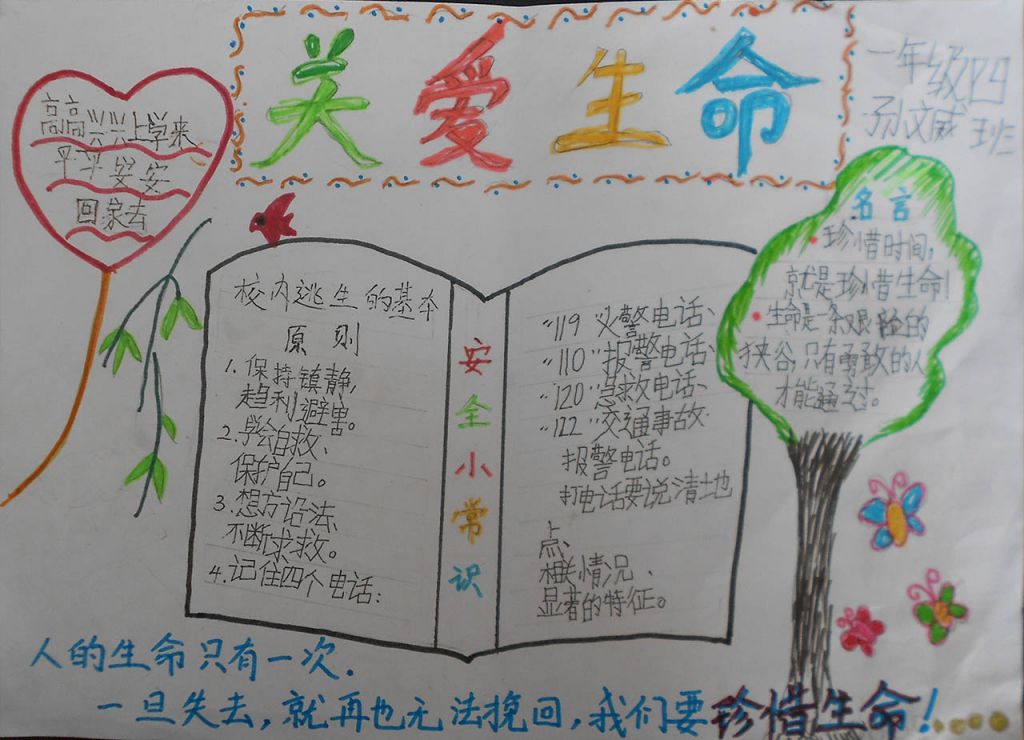 关爱生命
一年级四班
孙文威
高高兴兴上学来
平平安安
回家去
校内逃生的基本
原则
1.保持镇静,
趋利避害。
2.学会自救、
保护自己。
3.想方设法、
不断求救。
4.记住四个电话:
安全小常识
“119”火警电话、
“110”报警电话、
“120”急救电话、
“122”交通事故
报警电话。
打电话要说清地
点、
相关情况、
显著的特征。
名言
珍惜时间,
就是珍惜生命!
生命是一条艰险的
狭谷,只有勇敢的人
才能通过。
人的生命只有一次.
一旦失去,就再也无法挽回,我们要珍惜生命!